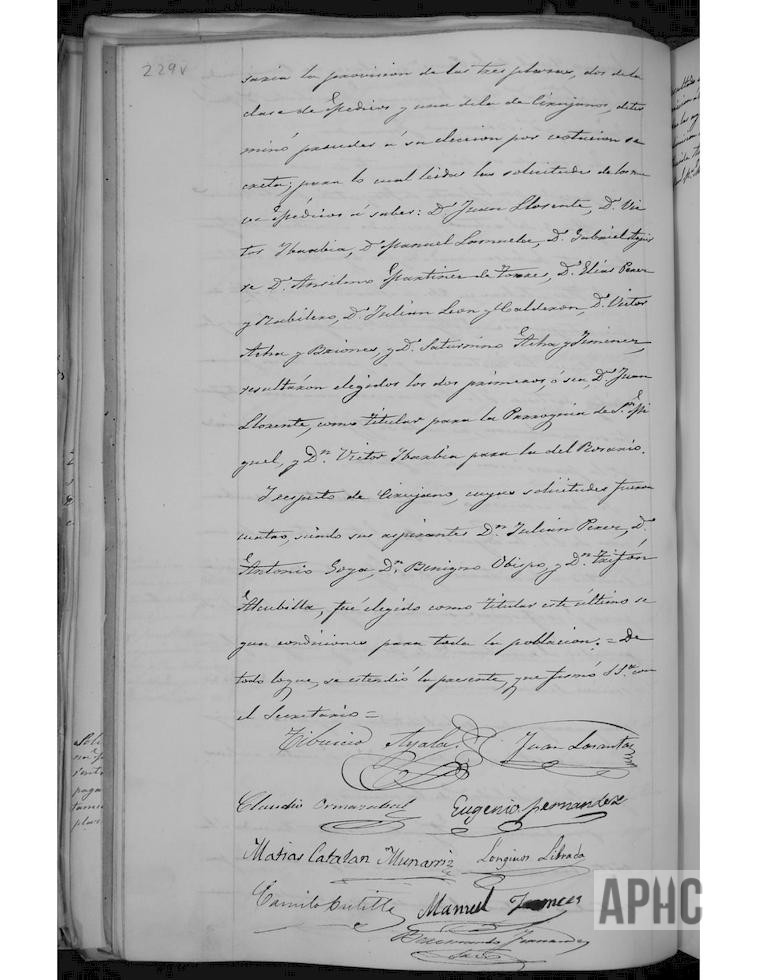 229v
saria la provision de las tres plazas, dos de la
clase de Medicos y una de la de Cirujanos, deter
minó proceder á su eleccion por votacion se
creta; para lo cual leidas las solicitudes de los nue
ve Médicos á saber: D. Juan Llorente, D. Vic
tor Ibarbia, D. Manuel D. Gabriel
D. Anselmo Martinez de Torres, D. Elías Perez
y D. Julian Leon y Calderon, D. Victor
Acha y Briones, y D. Saturnino Acha y Jimenez,
resultáron elegidos los dos primeros, ó sea, D. Juan
Llorente, como titular para la Parroquia de S.n Mi
guel, y Dn. Victor Ibarbia para la del Rosario.
Y respecto de Cirujano, cuyas solicitudes fueron
cuatro, siendo sus aspirantes Dn. Julian Perez, D.
Antonio Goya, Dn. Benigno Obispo, y Dn. Trifón
fué elegido como titular este último se
gun condiciones para toda la poblacion. = De
todo lo que, se estendió la presente, que firmó S.S. con
el Secretario =
Tiburcio Ayala Juan Losantos
Claudio Ormazabal Eugenio Fernandez
Matias Catalan Munarriz Longinos Librada
Camilo Cutilla Manuel
Raimundo Fernandez
Srio
APHC